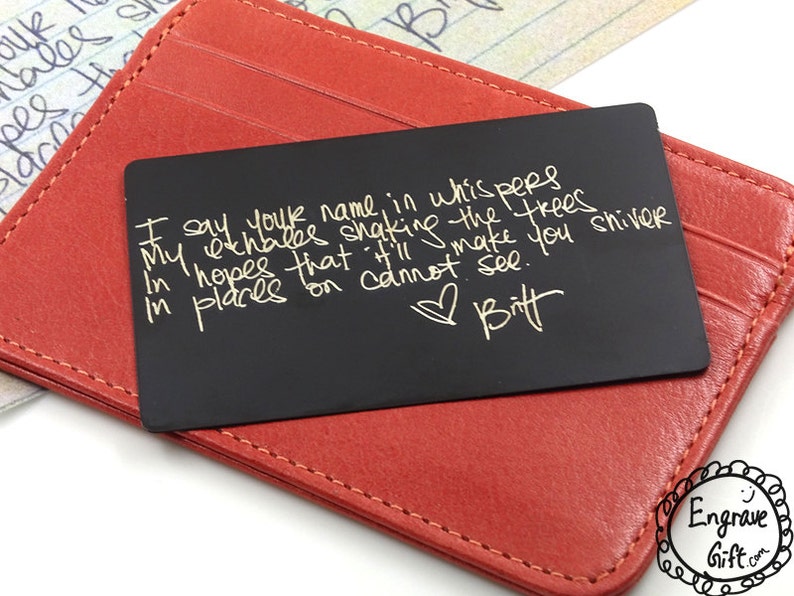 your
exhales
Britt
I say your name in whispers
My exhales shaking the trees
In hopes that it'll make you shiver
In places on cannot see.
♡ Britt
Engrave
Gift.com